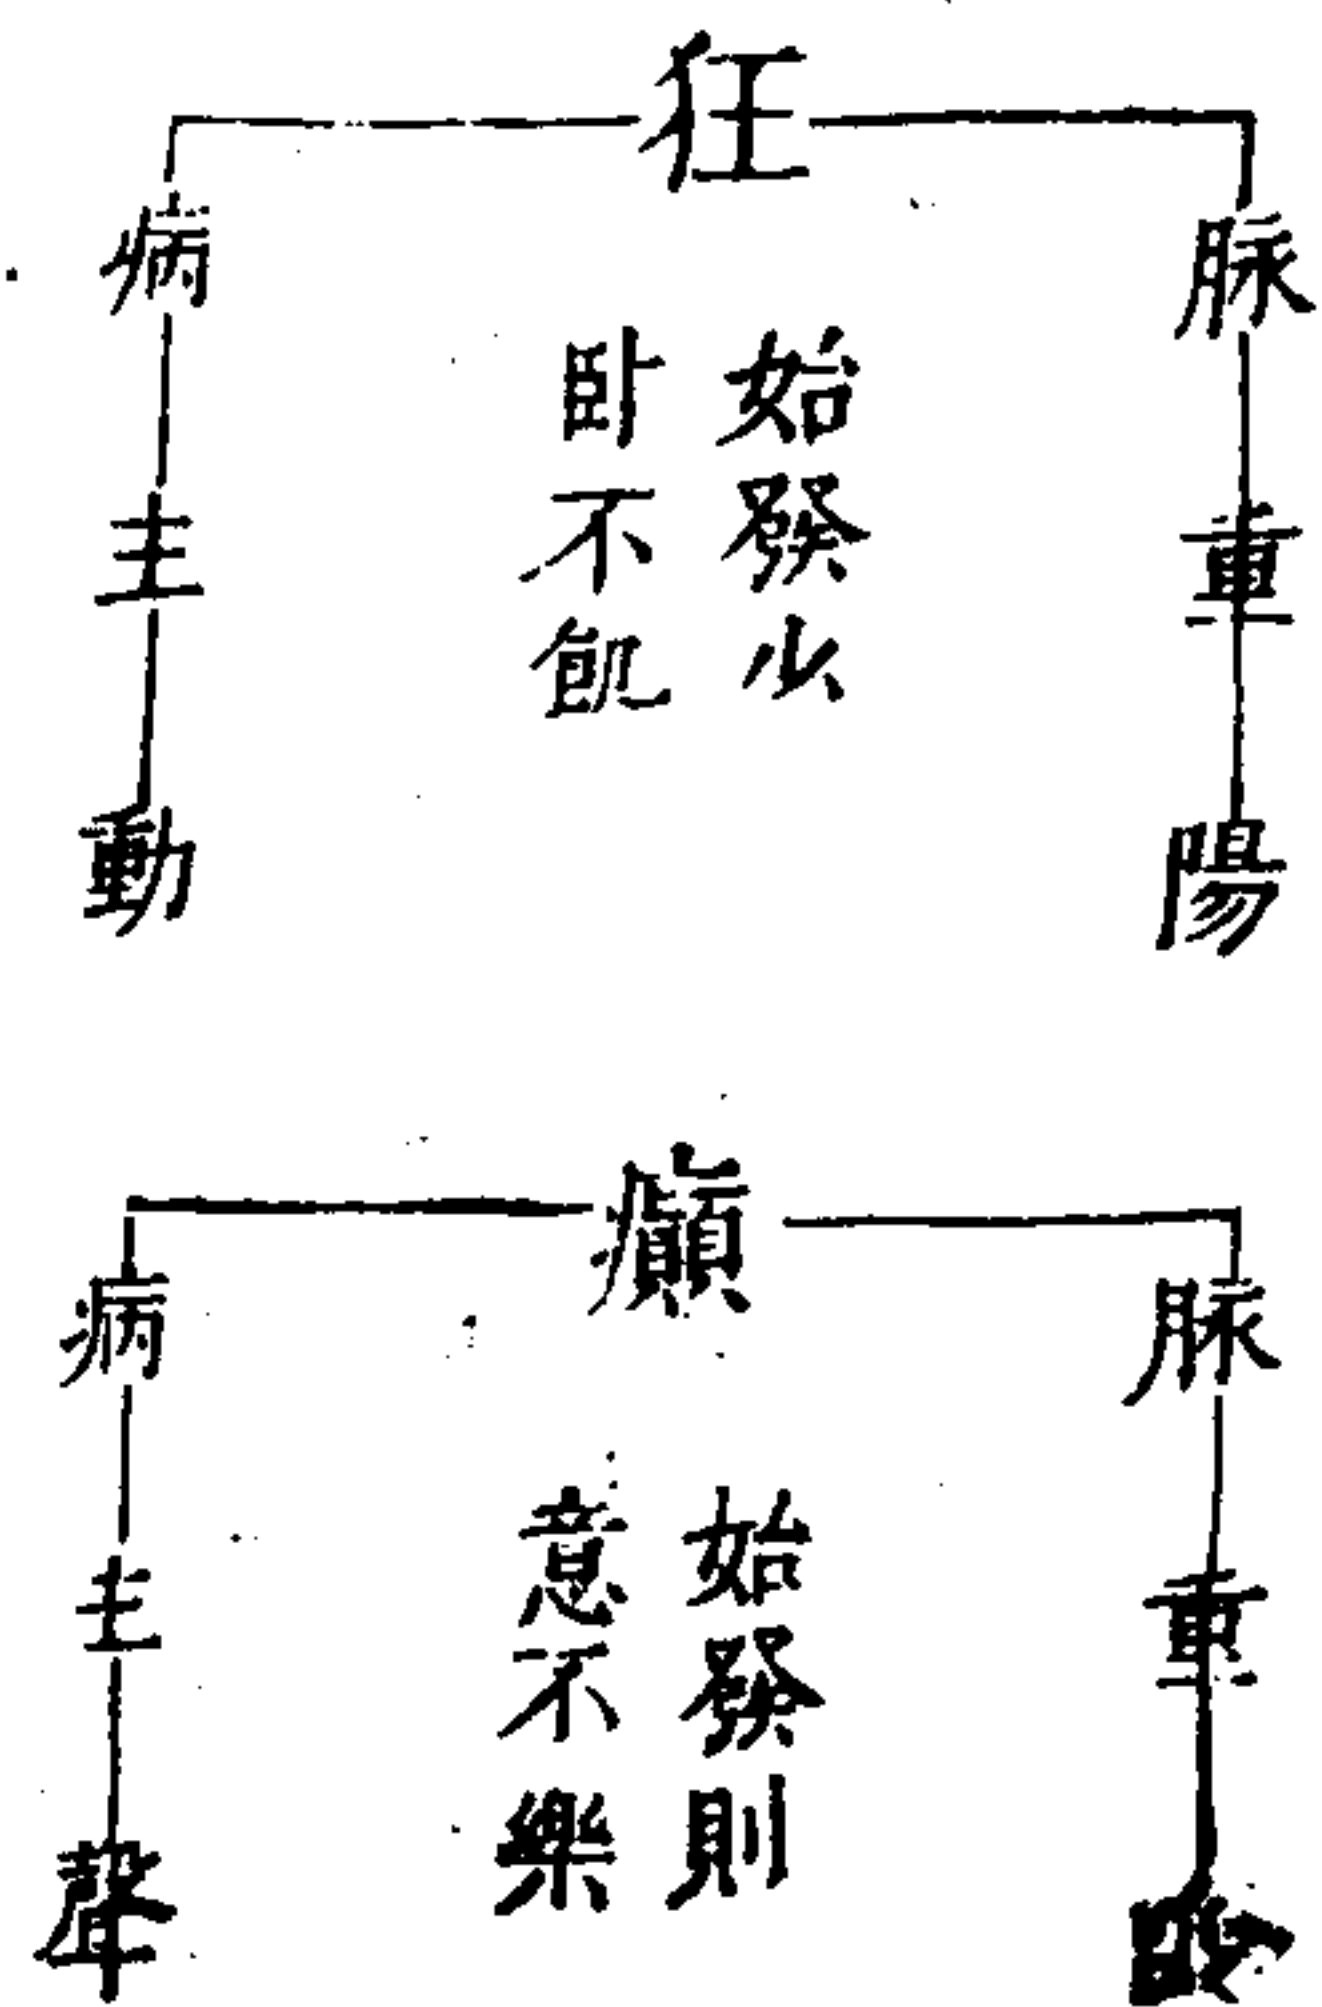 狂
脉重陽
始發少
臥不飢
病主動
癲
脉重
始發則
意不樂
病主聲